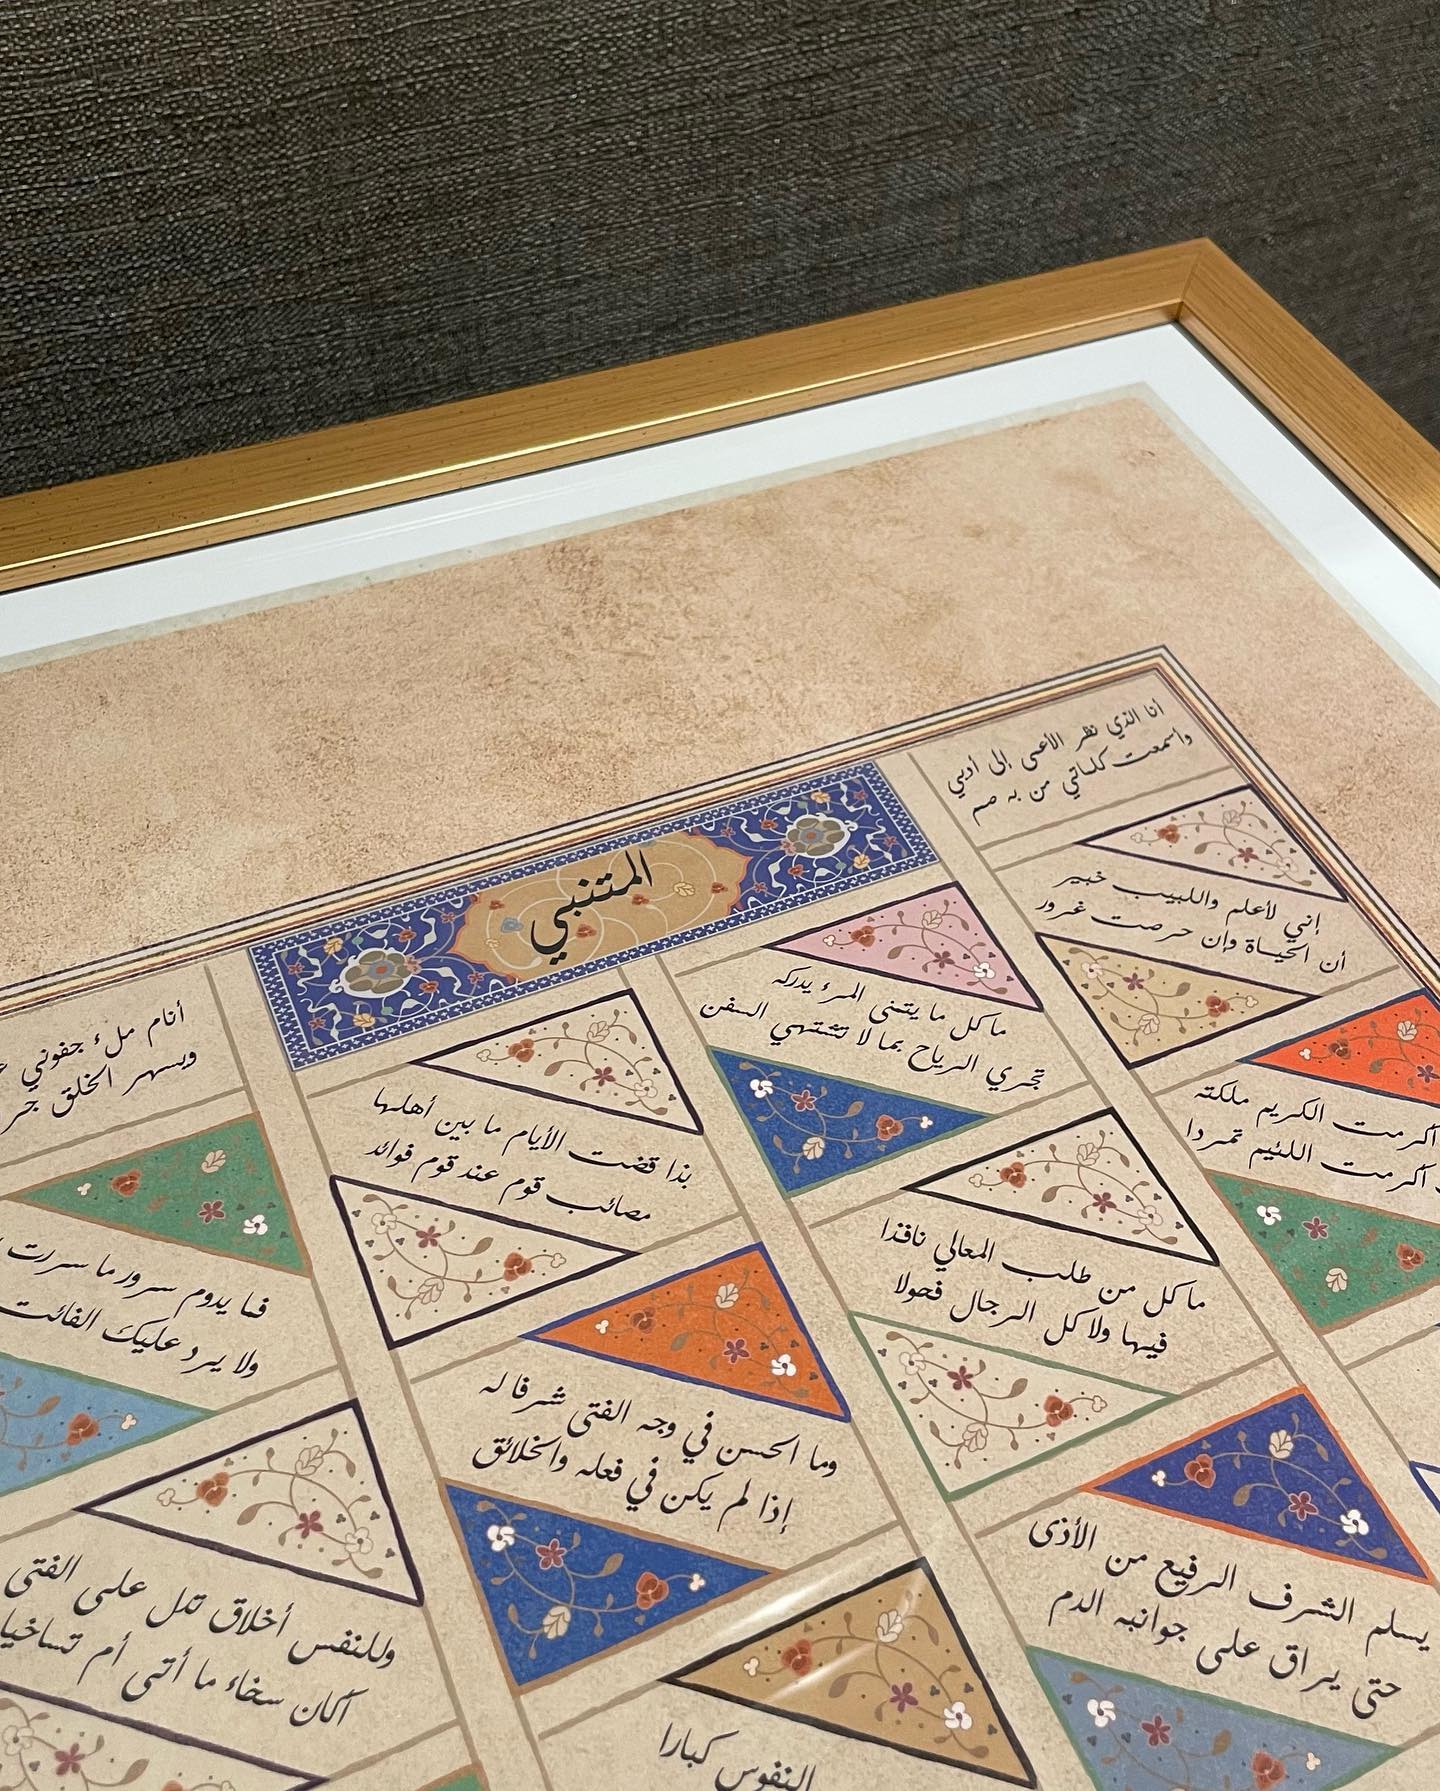 المتنبي
أنا الذي نظر الأعمى إلى أدبي
واسمعت كلماتي من به صمم
إني لأعلم واللبيب خبير
أن الحياة وإن حرصت غرور
أكرمت الكريم ملكته
أكرمت اللئيم تمردا
ما كل ما يتمنى المرء يدركه
تجري الرياح بما لا تشتهي السفن
ما كل من طلب المعالي نافذا
فيها ولا كل الرجال فحولا
يسلم الشرف الرفيع من الأذى
حتى يراق على جوانبه الدم
بذا قضت الأيام ما بين أهلها
مصائب قوم عند قوم فوائد
وما الحسن في وجه الفتى شرفا له
إذا لم يكن في فعله والخلائق
النفوس كبارا
أنام ملء جفوني
ويسهر الخلق
فما يدوم سرور ما سررت
ولا يرد عليك الفائت
وللنفس أخلاق تدل على الفتى
أكان سخاء ما أتى أم تساخيا